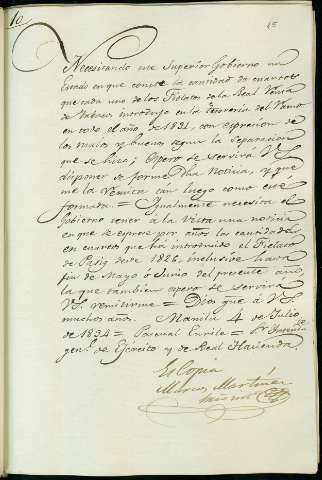 10.
15
Necesitando este Superior Gobierno un
Estado en que conste la cantidad de cuartos
que cada uno de los Fielatos de la Real Renta
de Tabaco introdujo en la Tesoreria del Ramo
en todo el año de 1831, con expresion de
los malos y buenos segun la separacion
que se hizo; espero se servirá V.S.
disponer se forme dha noticia, y que
me la remita tan luego como esté
formada. = Igualmente necesita el
Gobierno tener á la vista una noticia
en que se esprese por años las cantidades
en cuartos que há introducido el Fielato
de Pasig desde 1826, inclusive hasta
fin de Mayo ó Junio del presente año,
la que tambien espero se servirá
V.S. remitirme = Dios gue á V.S.
muchos años. Manila 4 de Julio
de 1834 = Pasqual Enrile = Sr Intendte
genl. de Ejército y de Real Hacienda.
Es Copia
Marcos Martinez